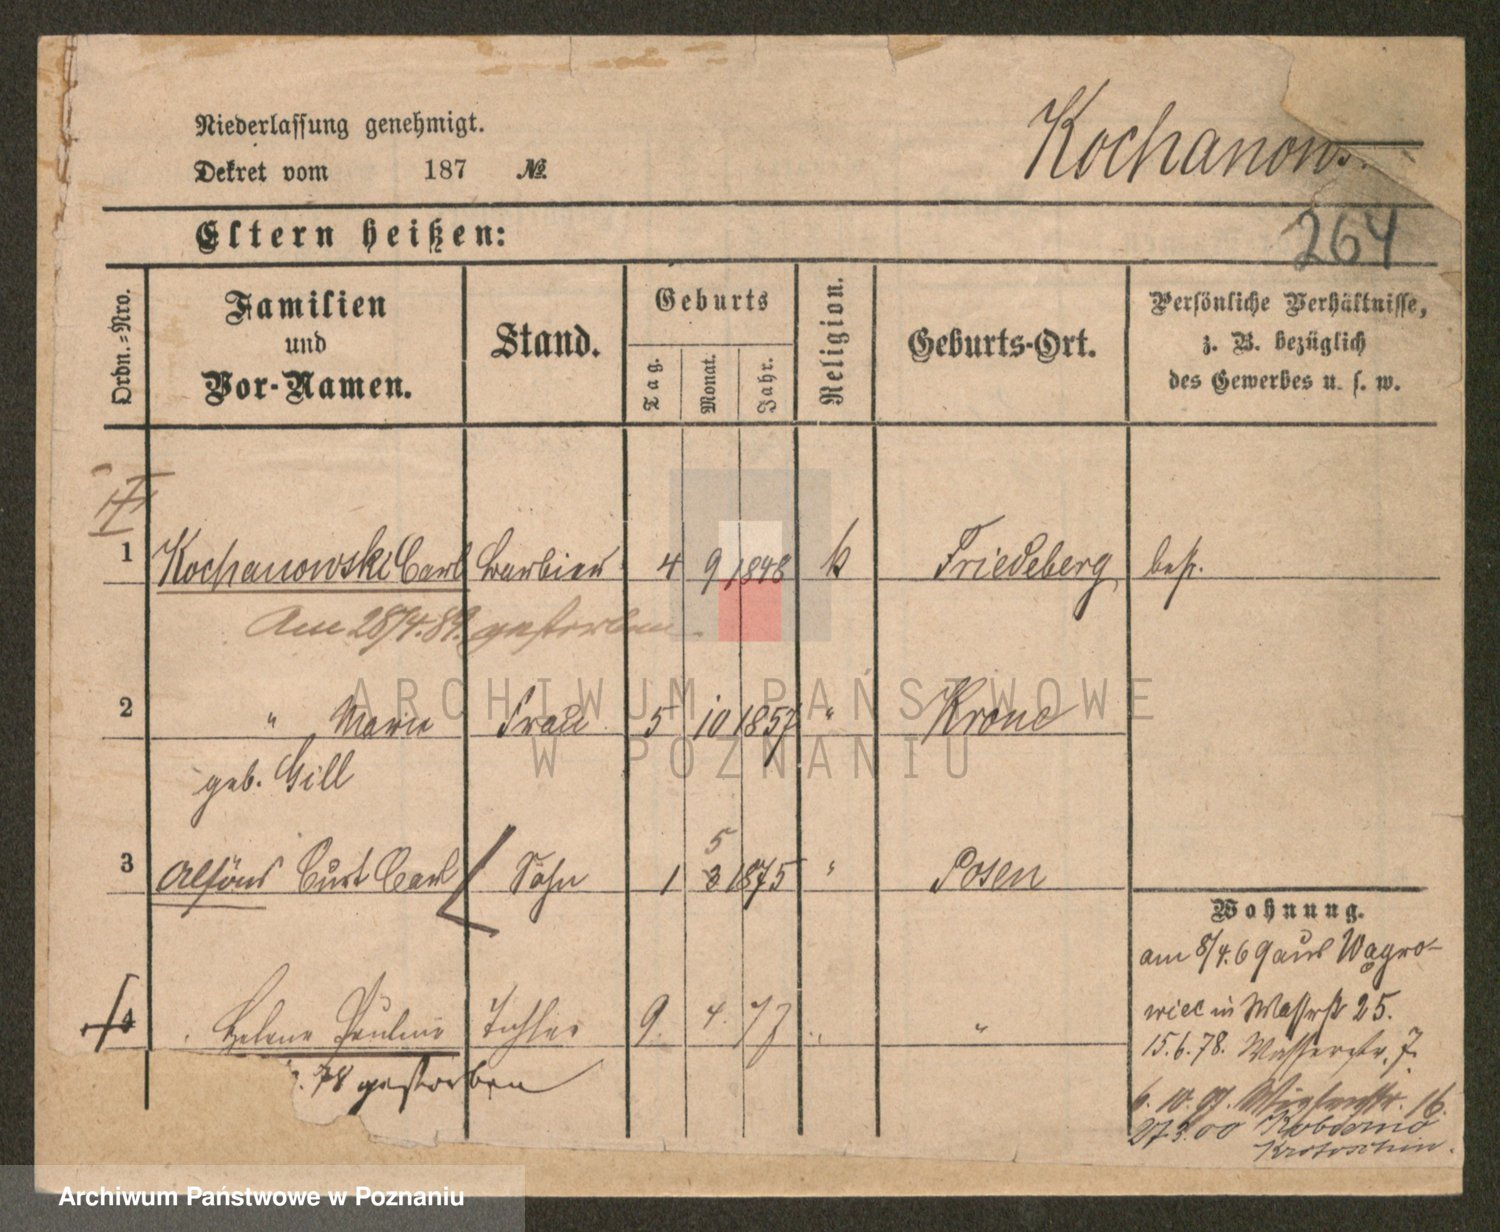 Niederlassung genehmigt.
Dekret vom 187 №
Kochanows
264
Eltern heißen:
Ordn.-Nro.
Familien und Vor-Namen.
Stand.
Geburts
Tag.
Monat.
Jahr.
Religion.
Geburts-Ort.
Persönliche Verhältnisse, z. B. bezüglich des Gewerbes u. s. w.
1 Kochanowski Carl Barbier 4 9 1848 k Friedeberg
Am 28/4.89. gestorben.
2 " Marie Frau 5 10 1857 " Krone
geb. Gill
5
3 Alfons Curt Carl Sohn 1 3 1875 " Posen
4 Helene Pauline Tochter 9. 4. 77 " "
78 gestorben
Wohnung.
am 8/4.69 aus Wągro-
wiec in Wasserstr 25.
15.6.78. Wasserstr. 7.
6. 10. 97. 16.
27.3.00
Krotoschin.
ARCHIWUM PAŃSTWOWE
W POZNANIU
Archiwum Państwowe w Poznaniu